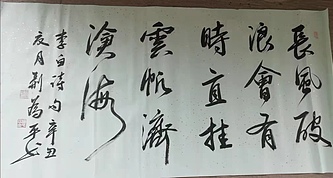 長風破
浪會有
時直挂
雲帆濟
滄海
李白诗句辛丑
夜月